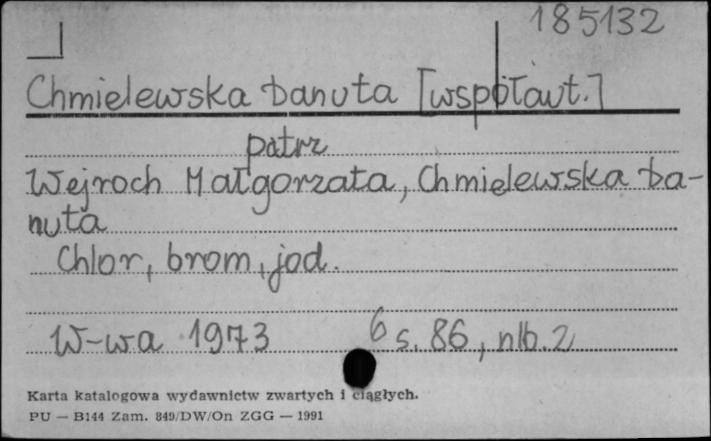 185132
Chmielewska Danuta [współaut.]
patrz
Wejroch Małgorzata, Chmielewska Da-
nuta
Chlor, brom, jod.
W-wa 1973 6 s. 86, nlb. 2
Karta katalogowa wydawnictw zwartych i ciągłych.
PU — B144 Zam. 849/DW/On ZGG — 1991